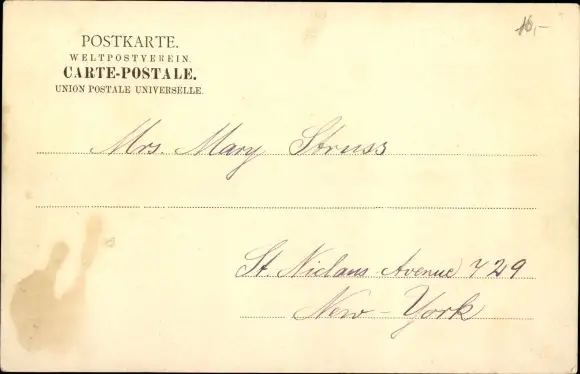 16,-
POSTKARTE.
WELTPOSTVEREIN.
CARTE-POSTALE.
UNION POSTALE UNIVERSELLE.
Mrs. Mary Struss
St. Niclaus Avenue 729
New-York